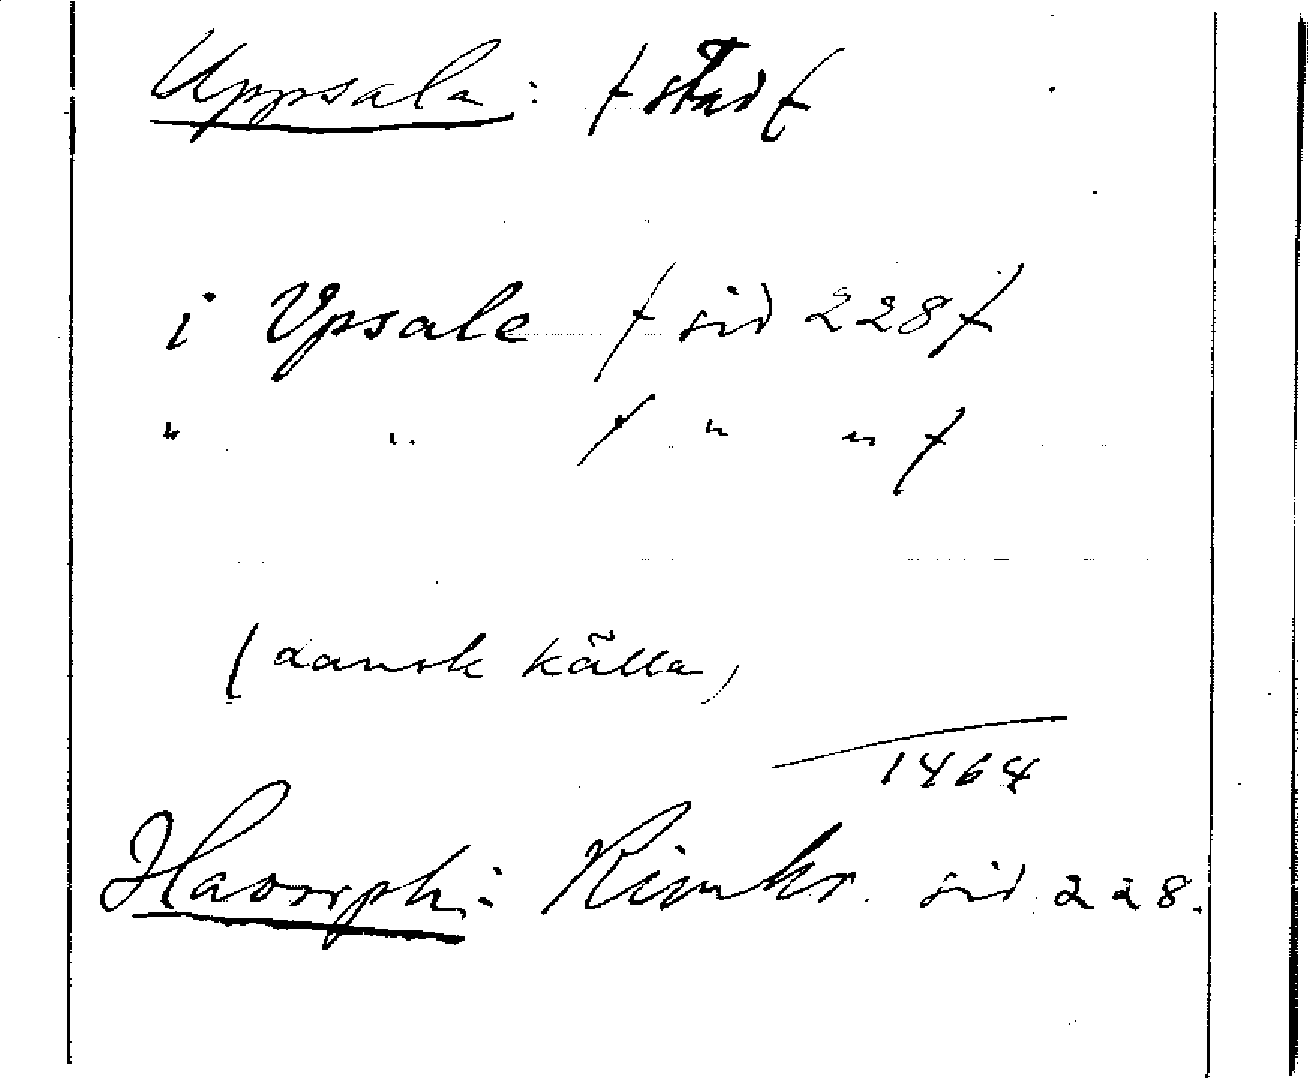 Uppsala: / stad /
i Vpsale / sid 228 /
" " / " " /
(dansk källa)
1464
Hadorph: Rimkr. sid 228.